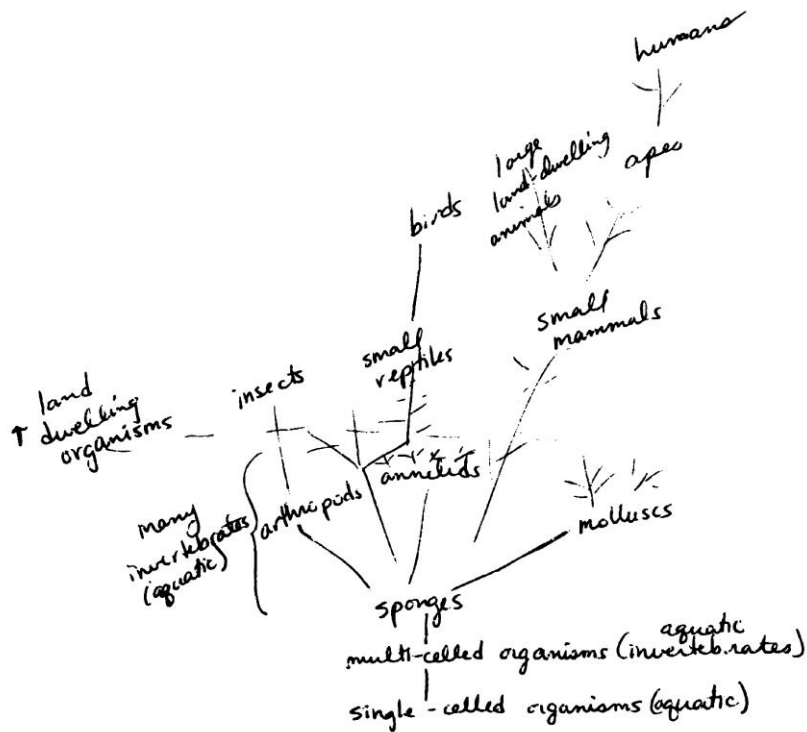 humans
large
land-dwelling
animals
apes
birds
small
mammals
small
reptiles
insects
land
↑ dwelling
organisms
annelids
arthropods
many
invertebrates
(aquatic)
molluscs
sponges
aquatic
multi-celled organisms (invertebrates)
single-celled organisms (aquatic)